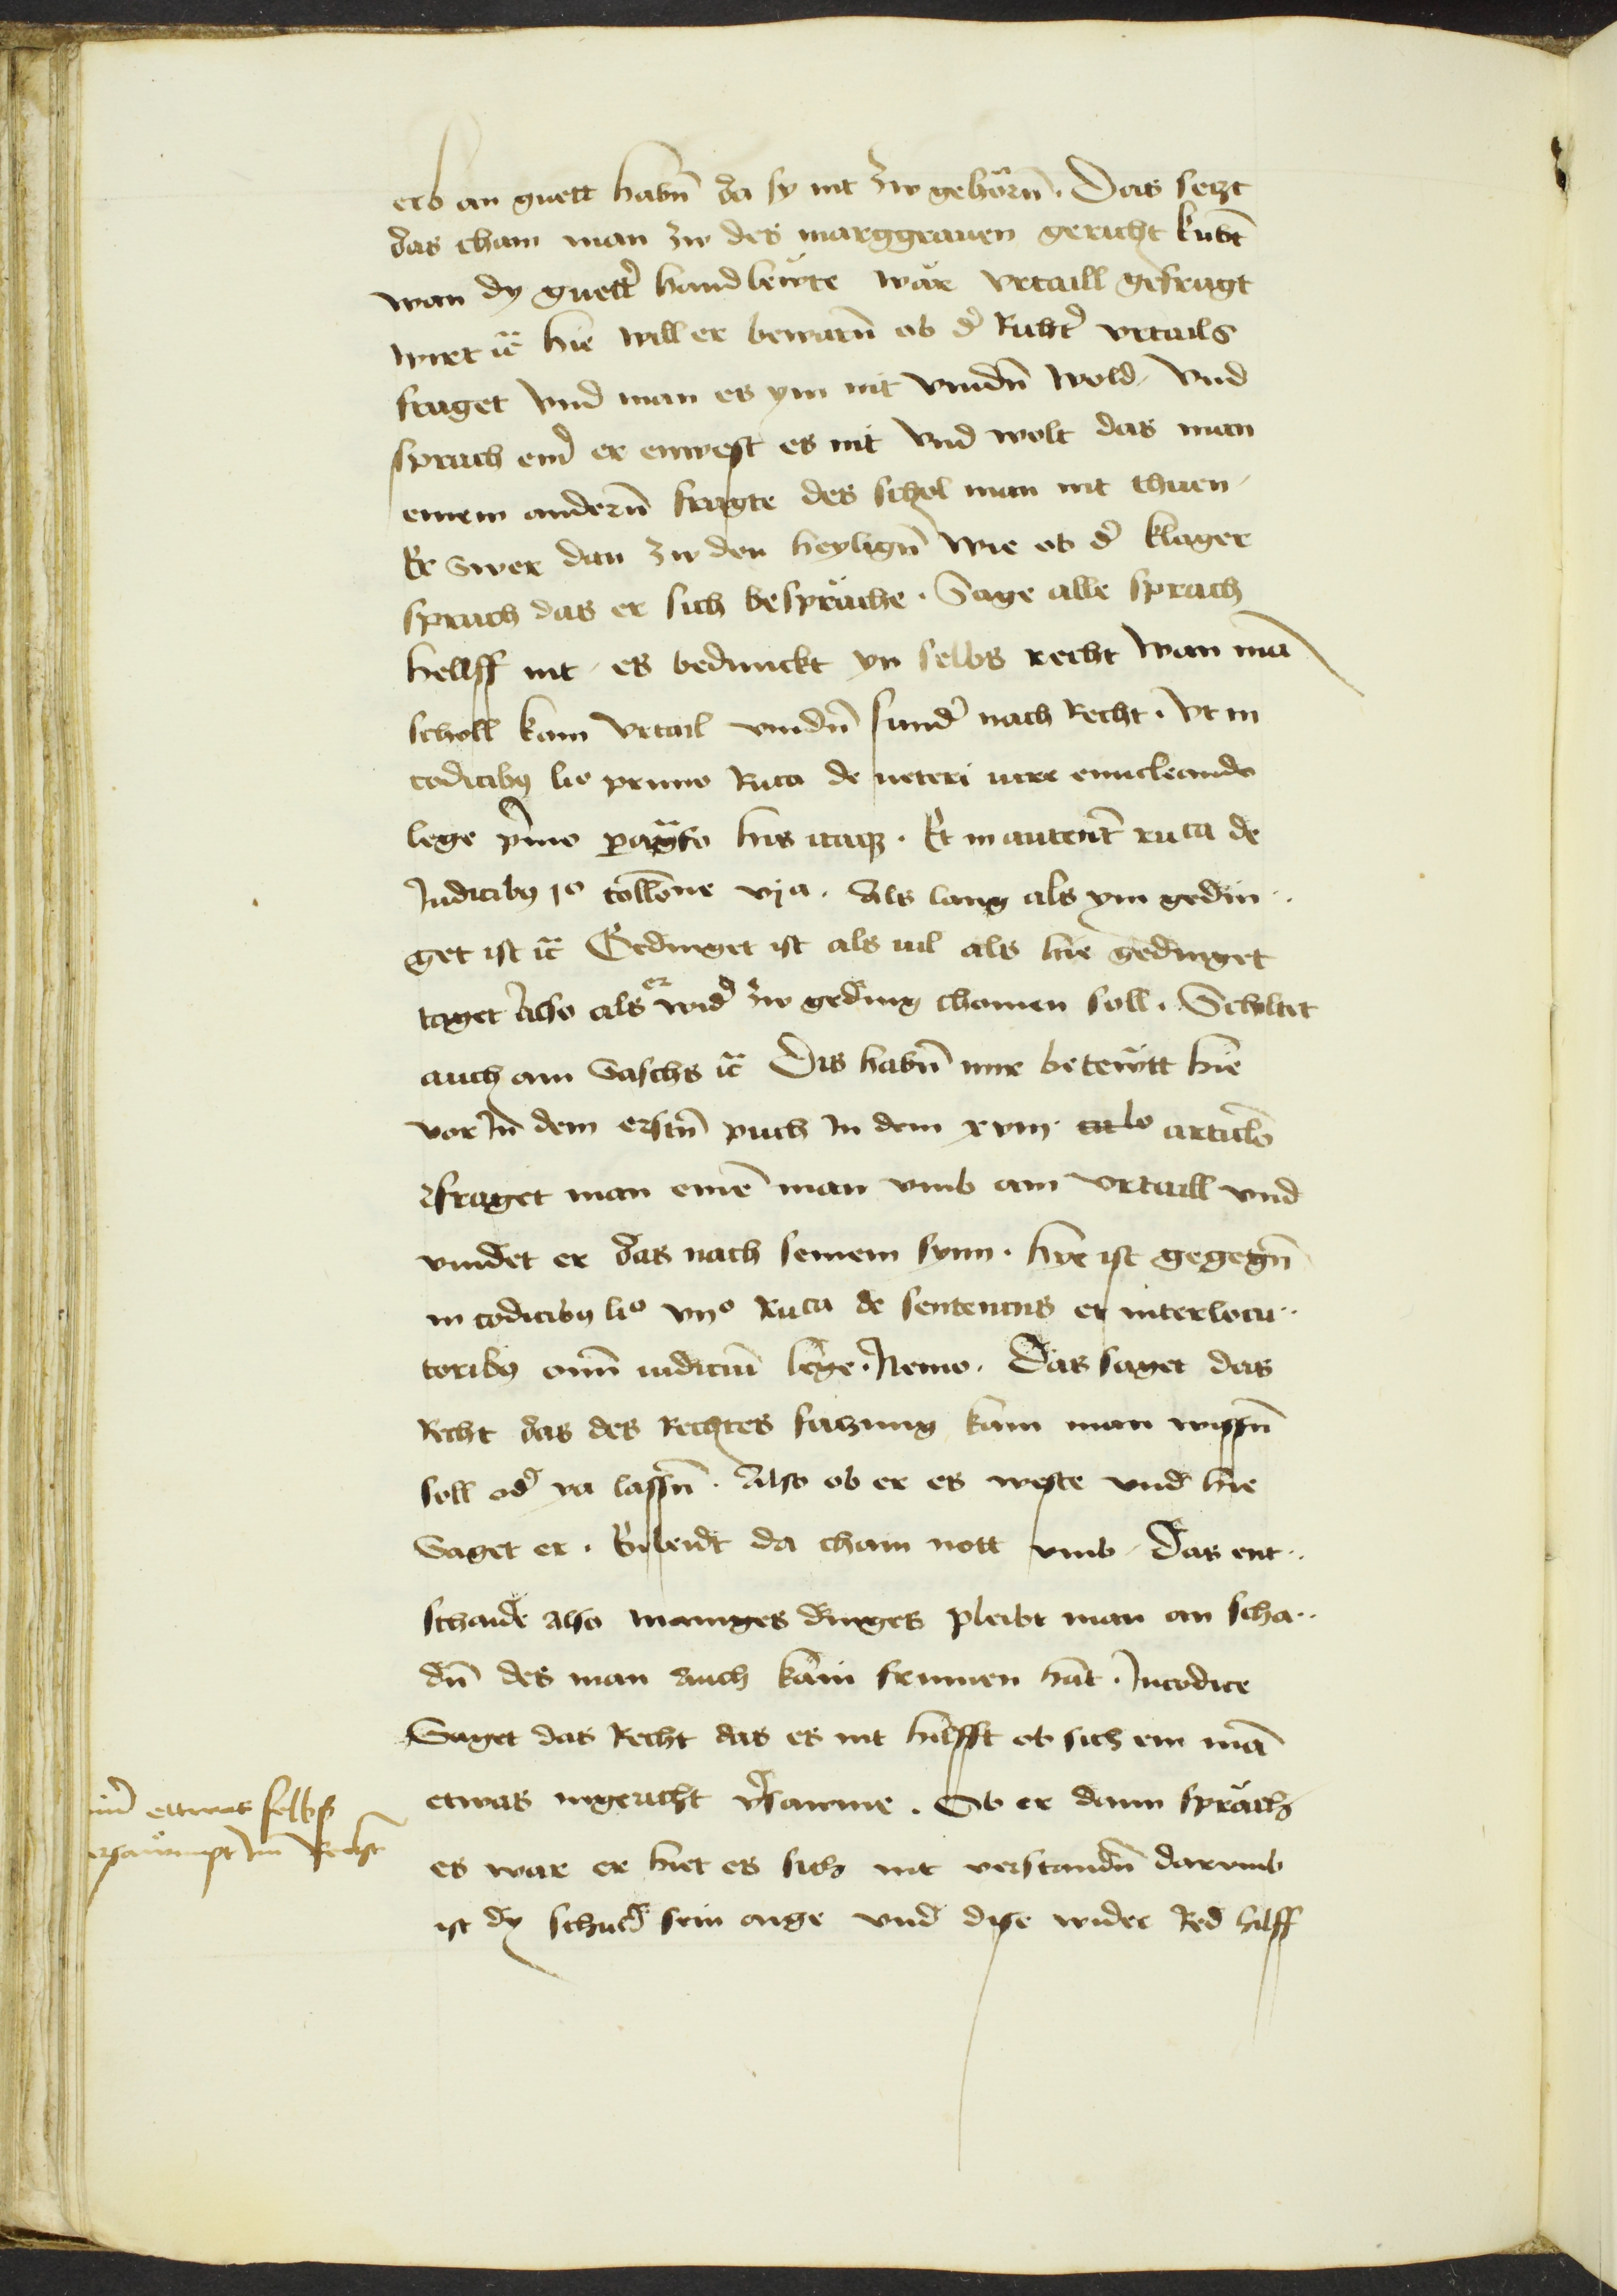 erb an guett habn̄ da sy nit zw gehörn̄. Das sezt
das cham man zw des marggrauen gericht kubt
wan dy guett' hand bewte wär vrtaill gefragt
wirt ꝛc̄ hie will er bewarn̄ ob d' Richt' vrtails
fraget vnd man es ym nit vindn̄ wold / vnd
sprach ein' er enwest es nit vnd wolt das man
einem andern̄ fragte des schol man nit thuen /
Er swer dan zw den heylign̄ wie ob d' klager
sprach das er sich bespräche. Sage alle sprach
hellff nit / es bedunckt yn selbs recht wan mā
scholl kain vrtail vindn̄ sund' nach Recht. Vt in
codicibꝫ lio primo Rica de ueteri iure enucleando
lege p'mo paḡfo his itaqꝫ. Et in autent̄ rica de
Judicibꝫ io collōne vja. Als lang als ym gedin..
get ist ꝛc̄ Gedinget ist als uil als hie gedinget
taget Also als er wid' zw geding chomen soll. Scholtet
auch ain Sachs ꝛc̄ Dis habn̄ mir betewtt hie
vor in dem erstn̄ puch in dem xviij articlo
Fraget man einē man vmb ain vrtaill vnd
vindet er das nach seinem synn. hye ist gegegn̄
in codicibꝫ lio vijo Rica de sentencijs et interlocu..
toribꝫ omn̄ iudiciū lege. Nemo. Das saget das
Recht das des Rechtes saczung kain man wissn̄
soll od' ya lassn̄. Also ob er es weste vnd hie
Saget er. Beleidt da cham nott vmb / Das ent..
schaide also maniges dinges pleibt man an scha..
dn̄ des man auch kain frumen hat. In codice
Saget das Recht das es nit hilfft ob sich ein mā
etwas ingericht v'sawme. Ob er dann spräch
es war er hiet es sich nit verstandn̄ darumb
ist dy schuld sein aige vnd dise wider Red hilff
ettwas selbs
ersawmpt im Recht